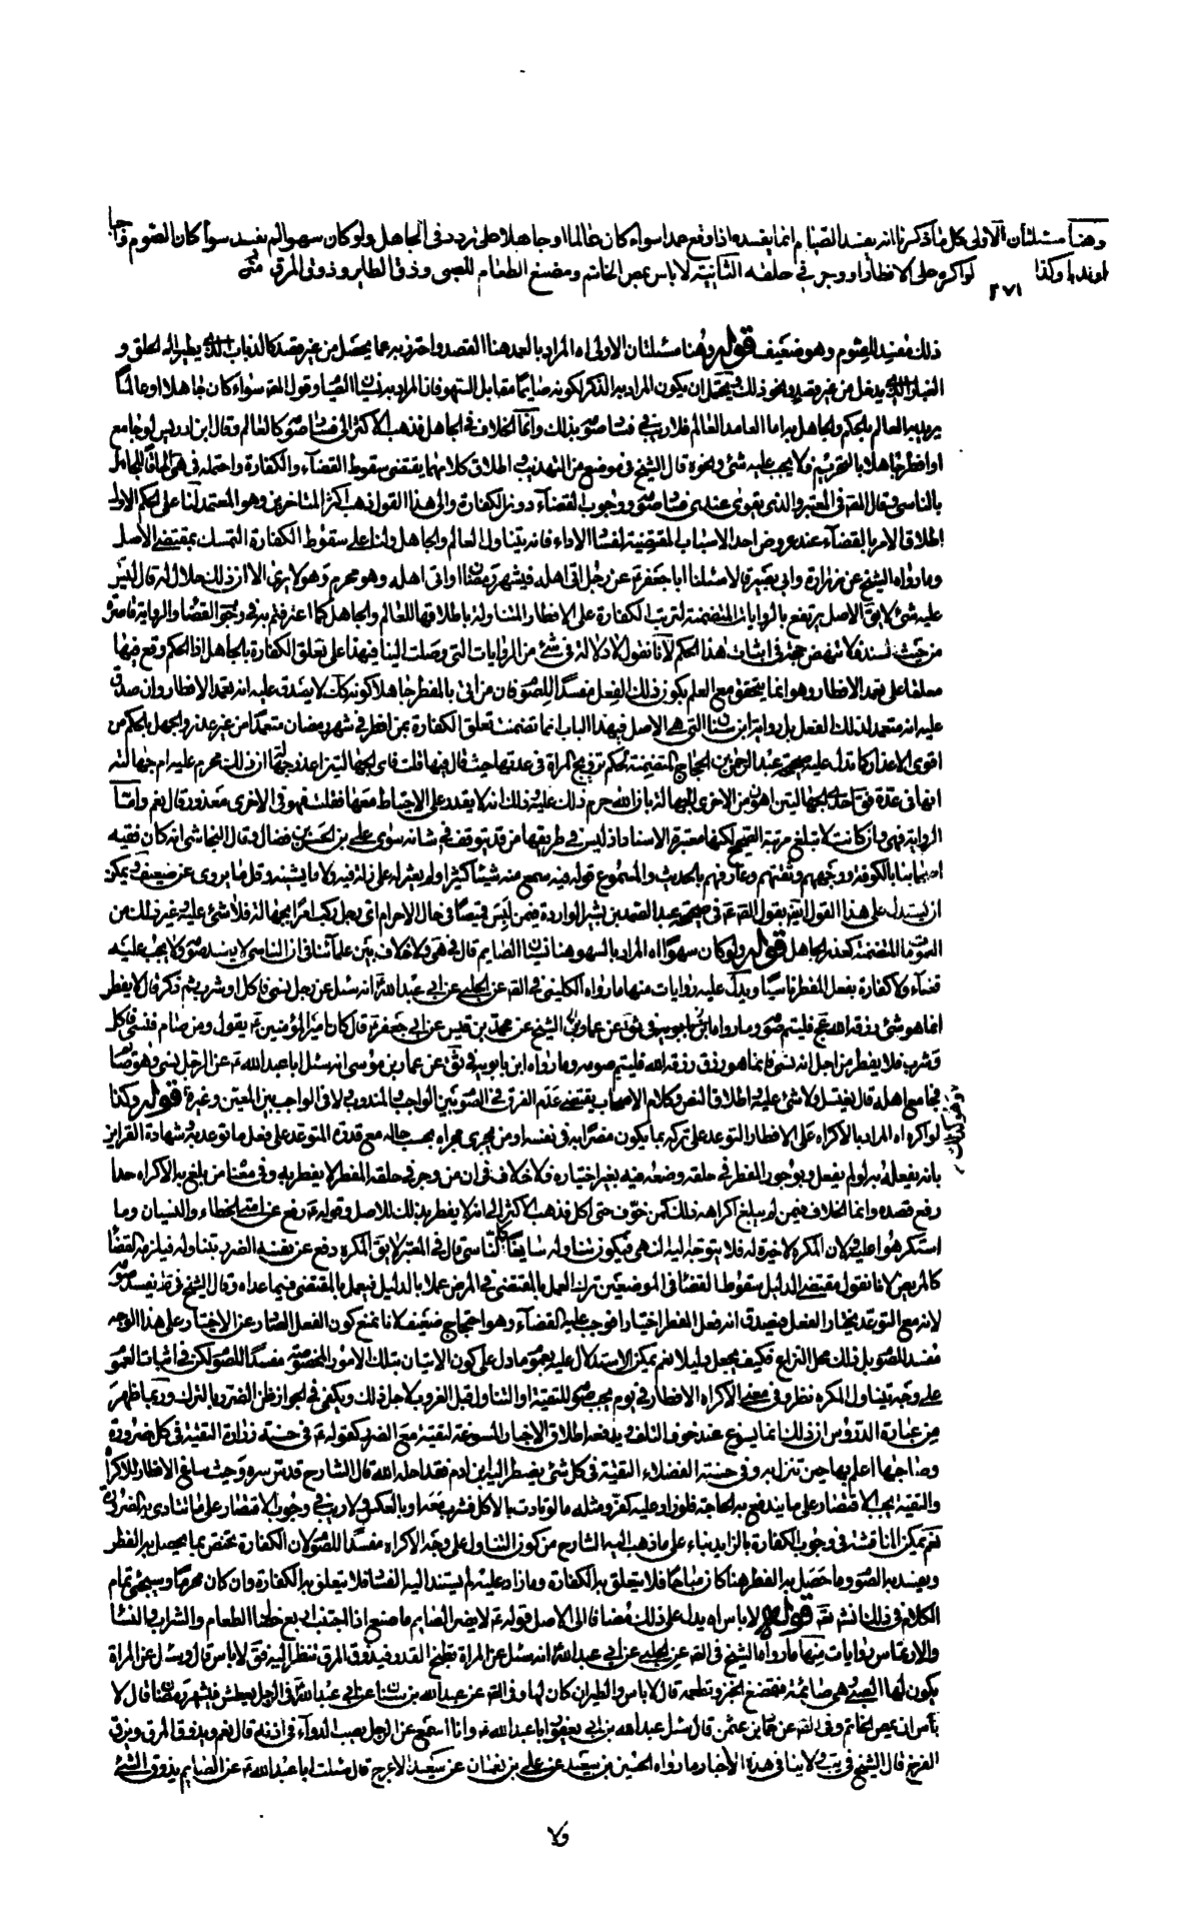 وهنا مسئلتان الاولى كل ما ذكرنا انه يفسد الصيام انما يفسده اذا وقع عمدا سواء كان عالما او جاهلا على تردد في الجاهل ولو كان سهوا لم يفسد سواء كان الصوم واجبا
او ندبا وكذا لو اكره على الافطار او وجر في حلقه الثانية لا باس بمص الخاتم ومضغ الطعام للصبى وذق الطاير وذوق المرق
٢٧١
ذلك مفسد للصوم وهو ضعيف قوله وهنا مسئلتان الاولى اه المراد بالعمد هنا القصد واحترز به عما يحصل من غير قصد كالذباب الذى يطير الى الحلق و
الغبار الذى يدخل من غير قصد ونحو ذلك ويحتمل ان يكون المراد به الذكر لكونه صايما مقابل السهو فان المراد به نسيان الصيام وقول المص سواء كان جاهلا او عالما
يريد به العالم بالحكم والجاهل به اما العامد العالم فلا ريب في فساد صومه بذلك وانما الخلاف في الجاهل فذهب الاكثر الى فساد صومه كالعالم وقال ابن ادريس لو جامع
او افطر جاهلا بالتحريم فلا يجب عليه شئ ونحوه قال الشيخ في موضع من التهذيب واطلاق كلامهما يقتضى سقوط القضاء والكفارة واحتمله في هى الحاقا للجاهل
بالناسى وقال المص في المعتبر والذى يقوى عندى فساد صومه ووجوب القضاء دون الكفارة والى هذا القول ذهب اكثر المتاخرين وهو المعتمد لنا على الحكم الاول
اطلاق الامر بالقضاء عند عروض احد الاسباب المقتضية لفساد الاداء فانه يتناول العالم والجاهل ولنا على سقوط الكفارة التمسك بمقتضى الاصل
وما رواه الشيخ عن زرارة وابي بصير قالا سئلنا ابا جعفر ع عن رجل اتى اهله في شهر رمضان او اتى اهله وهو محرم وهو لا يرى الا ان ذلك حلال له قال ليس
عليه شئ لا يق الاصل يرتفع بالروايات المتضمنة لترتب الكفارة على الافطار المتناولة باطلاقها للعالم والجاهل كما اعترفتم به في وجوب القضاء والرواية قاصرة
من حيث السند فلا تنهض حجة في اثبات هذا الحكم لانا نقول لا دلالة في شئ من الروايات التى وصلت الينا في هذا على تعلق الكفارة بالجاهل اذ الحكم وقع فيها
معلقا على تعمد الافطار وهو انما يتحقق مع العلم بكون ذلك الفعل مفسدا للصوم فان من اتى بالمفطر جاهلا كونه كك لا يصدق عليه انه تعمد الافطار وان صدق
عليه انه متعمد لذلك الفعل بل رواية ابن سنان التى هى الاصل في هذا الباب انما تضمنت تعلق الكفارة بمن افطر في شهر رمضان متعمدا من غير عذر والجهل بالحكم من
اقوى الاعذار كما تدل عليه صحيحة عبد الرحمن بن الحجاج المتضمنة لحكم تزويج المراة في عدتها حيث قال فيها قلت فاى الجهالتين اعذر بجهالته ان ذلك محرم عليه ام جهالته
انها في عدة فق احدى الجهالتين اهون من الاخرى الجهالة بان الله حرم ذلك عليه وذلك انه لا يقدر على الاحتياط معها فقلت فهو في الاخرى معذور قال نعم واما
الرواية فهى وان كانت لا تبلغ مرتبة الصحيح لكنها معتبرة الاسناد اذ ليس في طريقها من قد يتوقف في شانه سوى على بن الحسن بن فضال وقال النجاشى انه كان فقيه
اصحابنا بالكوفة ووجههم وثقتهم وعارفهم بالحديث والمسموع قوله فيه سمع منه شيئا كثيرا ولم يعثر له على زلة فيه ولا ما يشينه وقل ما يروى عن ضعيف ويمكن
ان يستدل على هذا القول ايضا بقول الص ع في صحيحة عبد الصمد بن بشير الواردة فيمن لبس قميصا في حال الاحرام اى رجل ركب امرا بجهالة فلا شئ عليه وغير ذلك من
العمومات المتضمنة لعذر الجاهل قوله ولو كان سهوا اه المراد بالسهو هنا نسيان الصايم قال في هى ولا خلاف بين علمائنا في ان الناسى لا يفسد صومه ولا يجب عليه
قضاء ولا كفارة بفعل المفطر ناسيا ويدل عليه روايات منها ما رواه الكلينى في الص عن الحلبى عن ابي عبد الله ع انه سئل عن رجل نسى فاكل او شرب ثم ذكر قال لا يفطر
انما هو شئ رزقه الله عج فليتم صومه وما رواه الشيخ عن محمد بن قيس عن ابي جعفر ع قال كان امير المؤمنين ع يقول ومن صام فنسى فاكل
وشرب فلا يفطر من اجل انه نسى فانما هو رزق رزقه الله فليتم صومه وما رواه ابن بابويه في ثق عن عمار بن موسى انه سئل ابا عبد الله ع عن الرجل ينسى وهو صايم
فجامع اهله قال يغتسل ولا شئ عليه واطلاق النص وكلام الاصحاب يقتضى عدم الفرق في الصوم بين الواجب والمندوب ولا في الواجب بين المعين وغيره قوله وكذا
لو اكره اه المراد بالاكراه على الافطار التوعد على تركه بما يكون مضرا به في نفسه او من يجرى مجراه بحسب حاله مع قدرة المتوعد على فعل ما توعد به وشهادة القراين
بانه يفعله به لو لم يفعل وبوجور المفطر في حلقه وضعه فيه بغير اختياره ولا خلاف في ان من وجر في حلقه المفطر لا يفطر به وفي معناه من بلغ به الاكراه حدا
رفع قصده وانما الخلاف فيمن لم يبلغ اكراهه ذلك كمن خوف حتى اكل فذهب الاكثر الى انه لا يفطر بذلك للاصل وقوله ع رفع عن امتى الخطاء والنسيان وما
استكرهوا عليه ولان المكره لا خيرة له فلا يتوجه اليه النهى فيكون تناوله سايغا كالناسى قال في المعتبر لا يق المكره دفع عن نفسه الضرر بتناوله فيلزمه القضاء
كالمريض لانا نقول مقتضى الدليل سقوط القضاء في الموضعين ترك العمل بالمقتضى في المرض عملا بالدليل فيعمل بالمقتضى فيما عداه وقال الشيخ في ط يفسد صومه
لانه مع التوعد يختار الفعل فيصدق انه فعل المفطر اختيارا فوجب عليه القضاء وهو احتجاج ضعيف لانا نمنع كون الفعل الصادر عن الاختيار على هذا الوجه
مفسدا للصوم بل ذلك محل النزاع فكيف يجعل دليلا نعم يمكن الاستدلال عليه بعموم ما دل على كون الاتيان بتلك الامور المخصوصة مفسدا للصوم لكن في اثبات العموم
على وجه يتناول المكره نظر وفي معنى الاكراه الافطار في يوم يجب صومه للتقية او التناول قبل الغروب لاجل ذلك ويكفى في الجواز ظن الضرر بالترك وربما ظهر
من عبارة الدروس ان ذلك انما يسوغ عند خوف التلف ويدفعه اطلاق الاخبار المسوغة للتقية مع الضرر كقوله ع في حسنة زرارة التقية في كل ضرورة
وصاحبها اعلم بها حين تنزل به وفي حسنة الفضلاء التقية في كل شئ يضطر اليه ابن ادم فقد احله الله قال الشارح قدس سره وحيث ساغ الافطار للاكراه
والتقية يجب الاقتصار على ما يندفع به الحاجة فلو زاد عليه كفر ومثله ما لو تادت بالاكل فشرب معه او بالعكس ولا ريب في وجوب الاقتصار على ما تتادى به الضرورة
نعم يمكن المناقشة في وجوب الكفارة بالزايد بناء على ما ذهب اليه الشارح من كون التناول على وجه الاكراه مفسدا للصوم لان الكفارة تختص بما يحصل به الفطر
ويفسد به الصوم وما حصل به الفطر هنا كان مباحا فلا يتعلق به الكفارة وما زاد عليه لم يستند اليه الفساد فلا يتعلق به الكفارة وان كان محرما وسيجئ تمام
الكلام في ذلك انش تعه قوله لا باس اه يدل على ذلك مضافا الى الاصل قوله ع لا يضر الصايم ما صنع اذا اجتنب اربع خصال الطعام والشراب والنساء
والارتماس وروايات منها ما رواه الشيخ في الص عن الحلبى عن ابي عبد الله ع انه سئل عن المراة تطبخ القدر فيذوق المرق تنظر اليه فق لا باس قال وسئل عن المراة
يكون لها الصبى وهى صائمة فتمضغ الخبز وتطعمه قال لا باس والطير ان كان لها وفي الص عن عبد الله بن سنان عن ابي عبد الله ع في الرجل يعطش في شهر رمضان قال لا
باس ان يمص الخاتم وفي الص عن حماد بن عثمن قال سئل عبد الله بن ابي يعفور ابا عبد الله ع وانا اسمع عن الرجل يصب الدواء في اذنه قال نعم ويذوق المرق ويزق
الفرخ قال الشيخ في يب ولا ينافى هذه الاخبار ما رواه الحسين بن سعيد عن على بن نعمان عن سعيد الاعرج قال سئلت ابا عبد الله ع عن الصايم يذوق الشئ
ولا